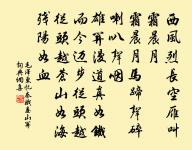 西風烈長空雁叫
霜晨月
霜晨月馬蹄聲碎
喇叭聲咽
雄関漫道真如鐵
而今迈步
從頭越蒼山如海
殘陽如血
毛澤東忆秦娥婁山関